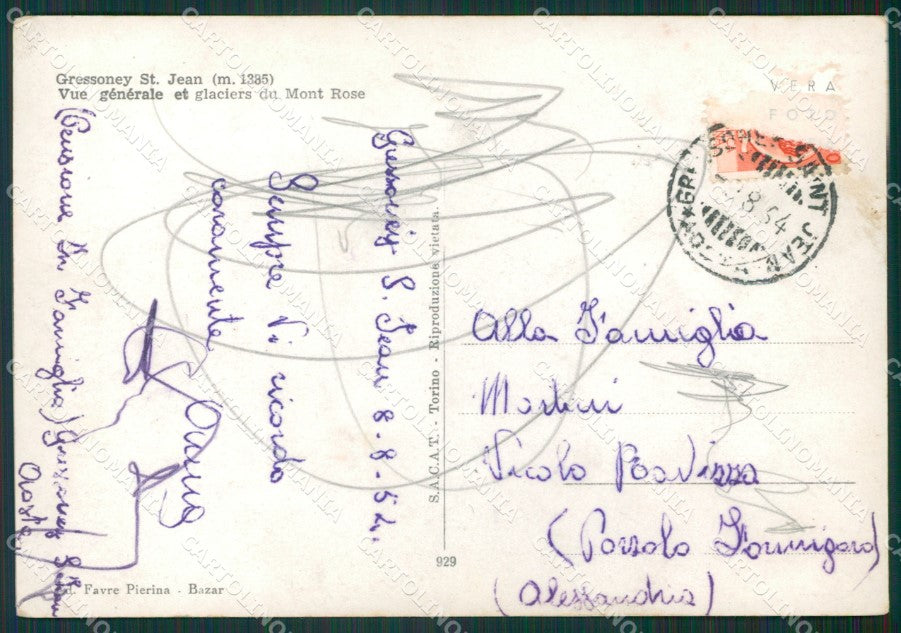 Gressoney St. Jean (m. 1385)
Vue générale et glaciers du Mont Rose
VERA
FOTO
SAINT JEAN
8.54
Gressoney S. Jean 8-8-54
Sempre Vi ricordo
caramente
(Pensione La Famiglia) Gressoney S. Jean
Aosta
S.A.C.A.T. - Torino - Riproduzione vietata
Alla Famiglia
Martini
Vicolo Ravizza
(Pozzolo Formigaro)
(Alessandria)
929
Ed. Favre Pierina - Bazar
CARTOLINOMANIA